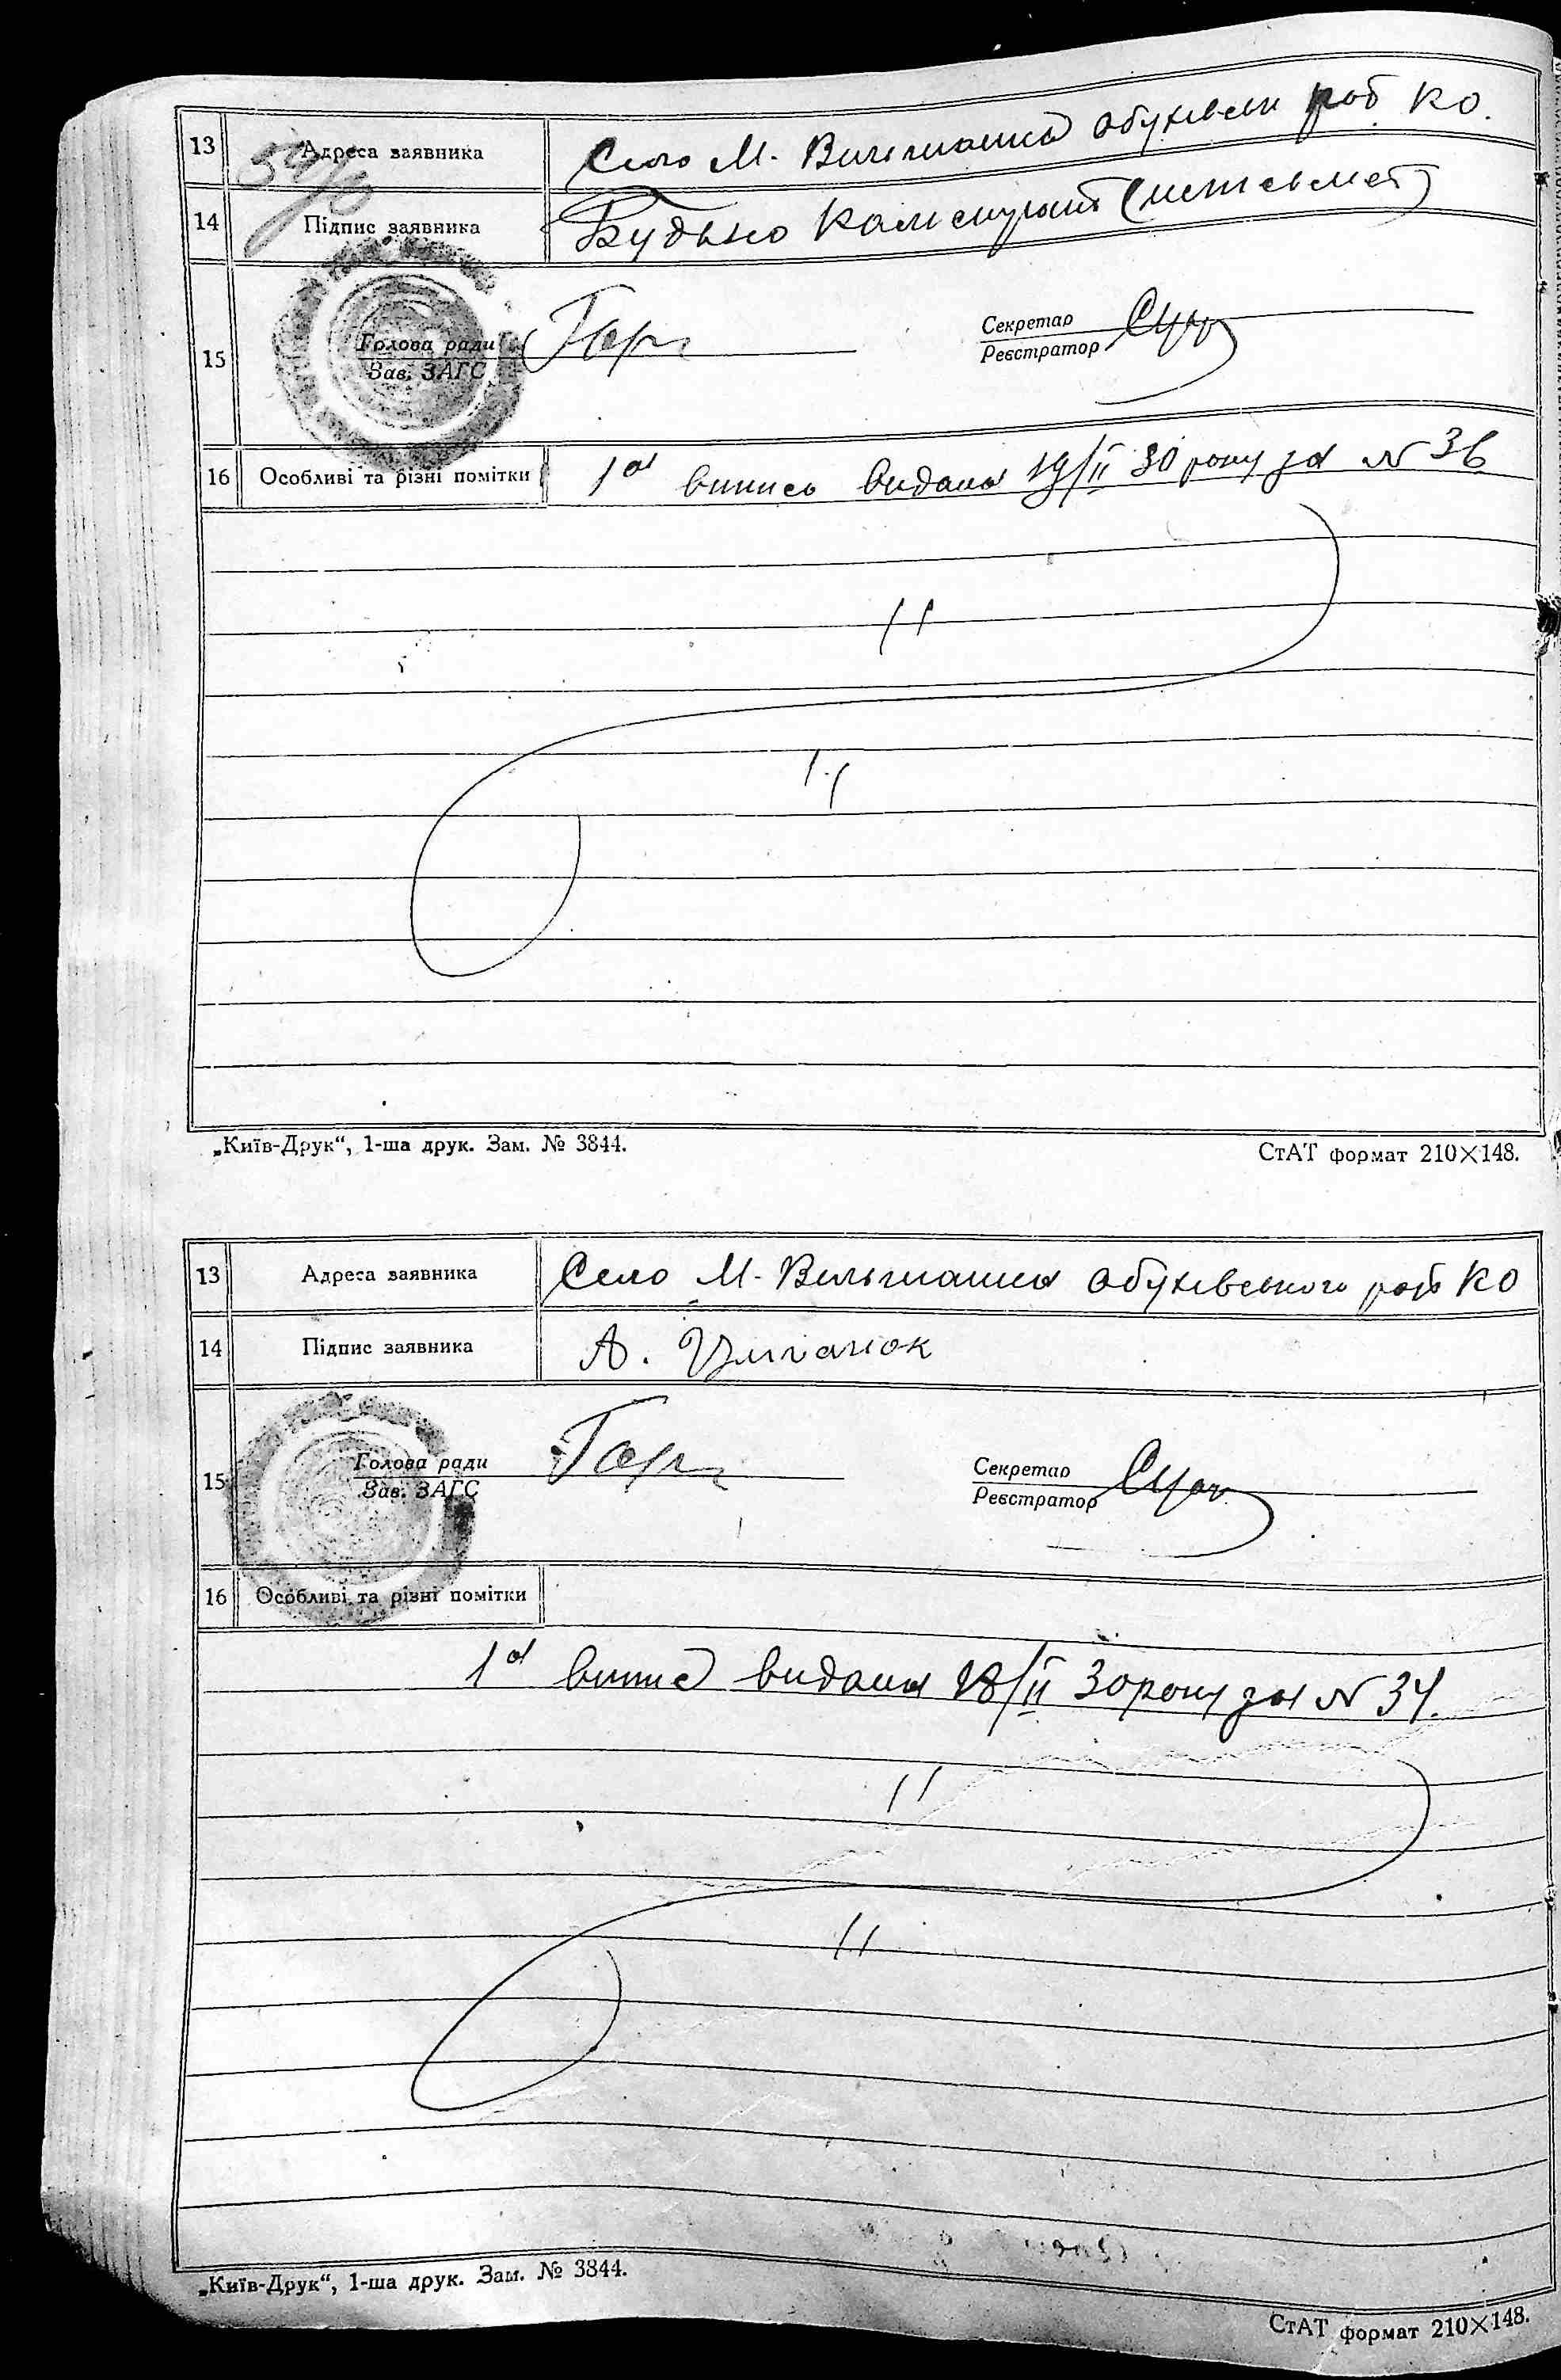 13 Адреса заявника Село М. Вільшанка Обухівськ рай. КО.
14 Підпис заявника Будько
15 Голова ради Секретар
Зав. ЗАГС Реєстратор
16 Особливі та різні помітки 1а випись видана 19/II 30 року за N 36
„Київ-Друк“, 1-ша друк. Зам. № 3844. СтАТ формат 210×148.
13 Адреса заявника Село М. Вільшанка Обухівського рай КО
14 Підпис заявника А. Циганок
15 Голова ради Секретар
Зав. ЗАГС Реєстратор
16 Особливі та різні помітки
1а випис видана 18/II 30 року за N 34.
„Київ-Друк“, 1-ша друк. Зам. № 3844.
СтАТ формат 210×148.